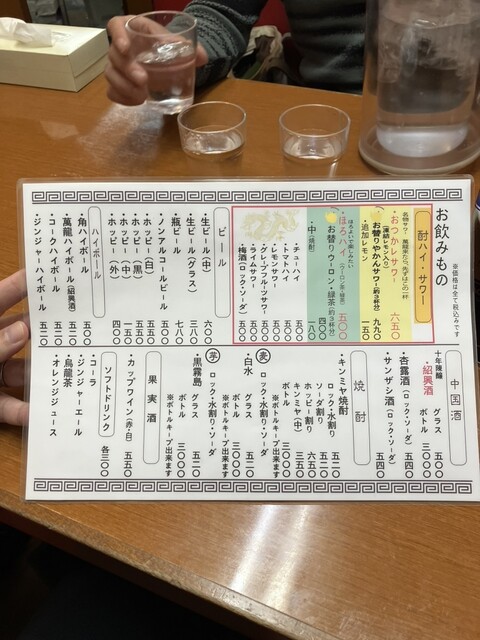 お飲みもの
※価格は全て税込みです
酎ハイ・サワー
名物サワー
・おつかレサワー 六五〇
(凍結レモン入り)
お替りやかんサワー(約3杯分) 九九〇
・追加レモン 一五〇
・ほろハイ(ウーロン茶・緑茶) 五〇〇
お替りウーロン・緑茶(約3杯分) 四〇〇
・中(焼酎) 一八〇
・チューハイ
・トマトハイ 五〇〇
・レモンサワー 五〇〇
・グレープフルーツサワー 五〇〇
・ライムサワー 五〇〇
・梅酒(ロック・ソーダ) 五〇〇
ビール
・生ビール(中) 六〇〇
・生ビール(グラス) 三八〇
・瓶ビール 七八〇
・ノンアルコールビール 五五〇
・ホッピー(白) 五五〇
・ホッピー(黒) 五五〇
・ホッピー(中)
・ホッピー(外) 四〇〇
ハイボール
・角ハイボール 五〇〇
・萬龍ハイボール(紹興酒) 五二〇
・コークハイボール 五二〇
・ジンジャーハイボール 五二〇
中国酒
十年陳醸
・紹興酒 グラス 五〇〇
ボトル
・杏露酒(ロック・ソーダ) 五四〇
・サンザシ酒(ロック・ソーダ) 五四〇
焼酎
・キンミヤ焼酎
ロック・水割り 五二〇
ソーダ割り
ホッピー割り 六五〇
キンミヤ(中) 三二〇
ボトル 三〇〇〇
※ボトルキープ出来ます
麦 ロック・水割り・ソーダ
・白水 グラス 五二〇
ボトル 三〇〇〇
※ボトルキープ出来ます
芋 ロック・水割り・ソーダ
・黒霧島 グラス 五二〇
ボトル 三〇〇〇
※ボトルキープ出来ます
果実酒
・カップワイン(赤・白) 五五〇
ソフトドリンク 各三〇〇
・コーラ
・ジンジャーエール
・烏龍茶
・オレンジジュース